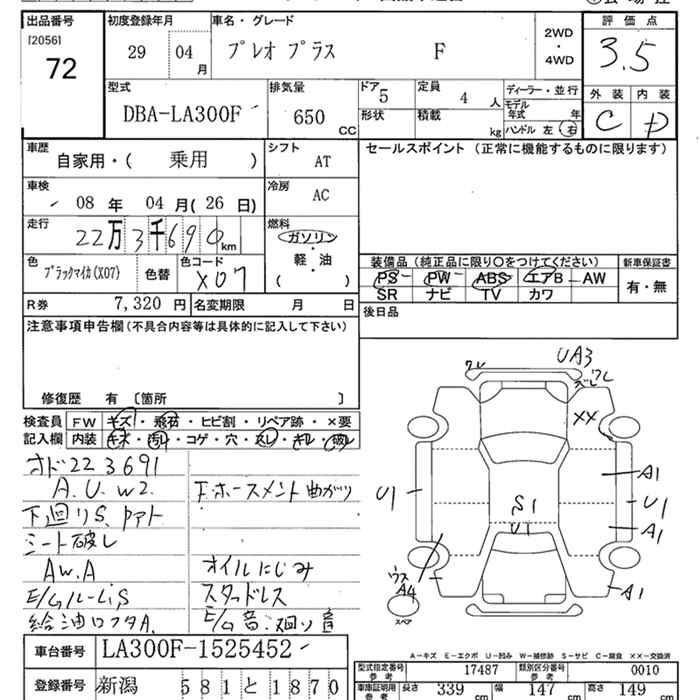 出品番号 初度登録年月 車名・グレード 2WD・4WD 評価点
[2056]
72 29 04月 プレオ プラス F 3.5
型式 排気量 ドア 定員 ディーラー・並行 外装 内装
DBA-LA300F 650CC 5 4人 モデル年式 年 C D
形状 積載 kg ハンドル 左 右
車歴 シフト セールスポイント (正常に機能するものに限ります)
自家用・( 乗用 ) AT
車検 冷房
08年 04月(26日) AC
走行 燃料
22万3千690km ガソリン
軽・油
( ・ )
色 色コード 装備品 (純正品に限り○をつけてください) 新車保証書
ブラックマイカ(X07) 色替 X07 PS PW ABS エアB AW 有・無
SR ナビ TV カワ
R券 7,320円 名変期限 月 日 後日品
注意事項申告欄(不具合内容等は具体的に記入して下さい)
修復歴 有 〔箇所 〕
検査員 FW キズ・飛石・ヒビ割・リペア跡・×要
記入欄 内装 キズ・汚れ・コゲ・穴・スレ・キレ・破レ
オド223691
A.U.W2. F.ホースメント曲がり
下廻りS.
シート破レ
AW.A オイルにじみ
スタッドレス
給油口フタA. E/G音.廻り音
ワレ UA3
ワレ
XX
A1
U1 S1 U1
U1 A1
A4 A1
スペア
A-キズ E-エクボ U-凹み W-補修跡 S-サビ C-腐食 XX-交換済
車台番号 LA300F-1525452
型式指定番号 参考 17487 類別区分番号 参考 0010
登録番号 新潟 581 と 1870
車庫証明用 参考 長さ 339cm 幅 147cm 高さ 149cm